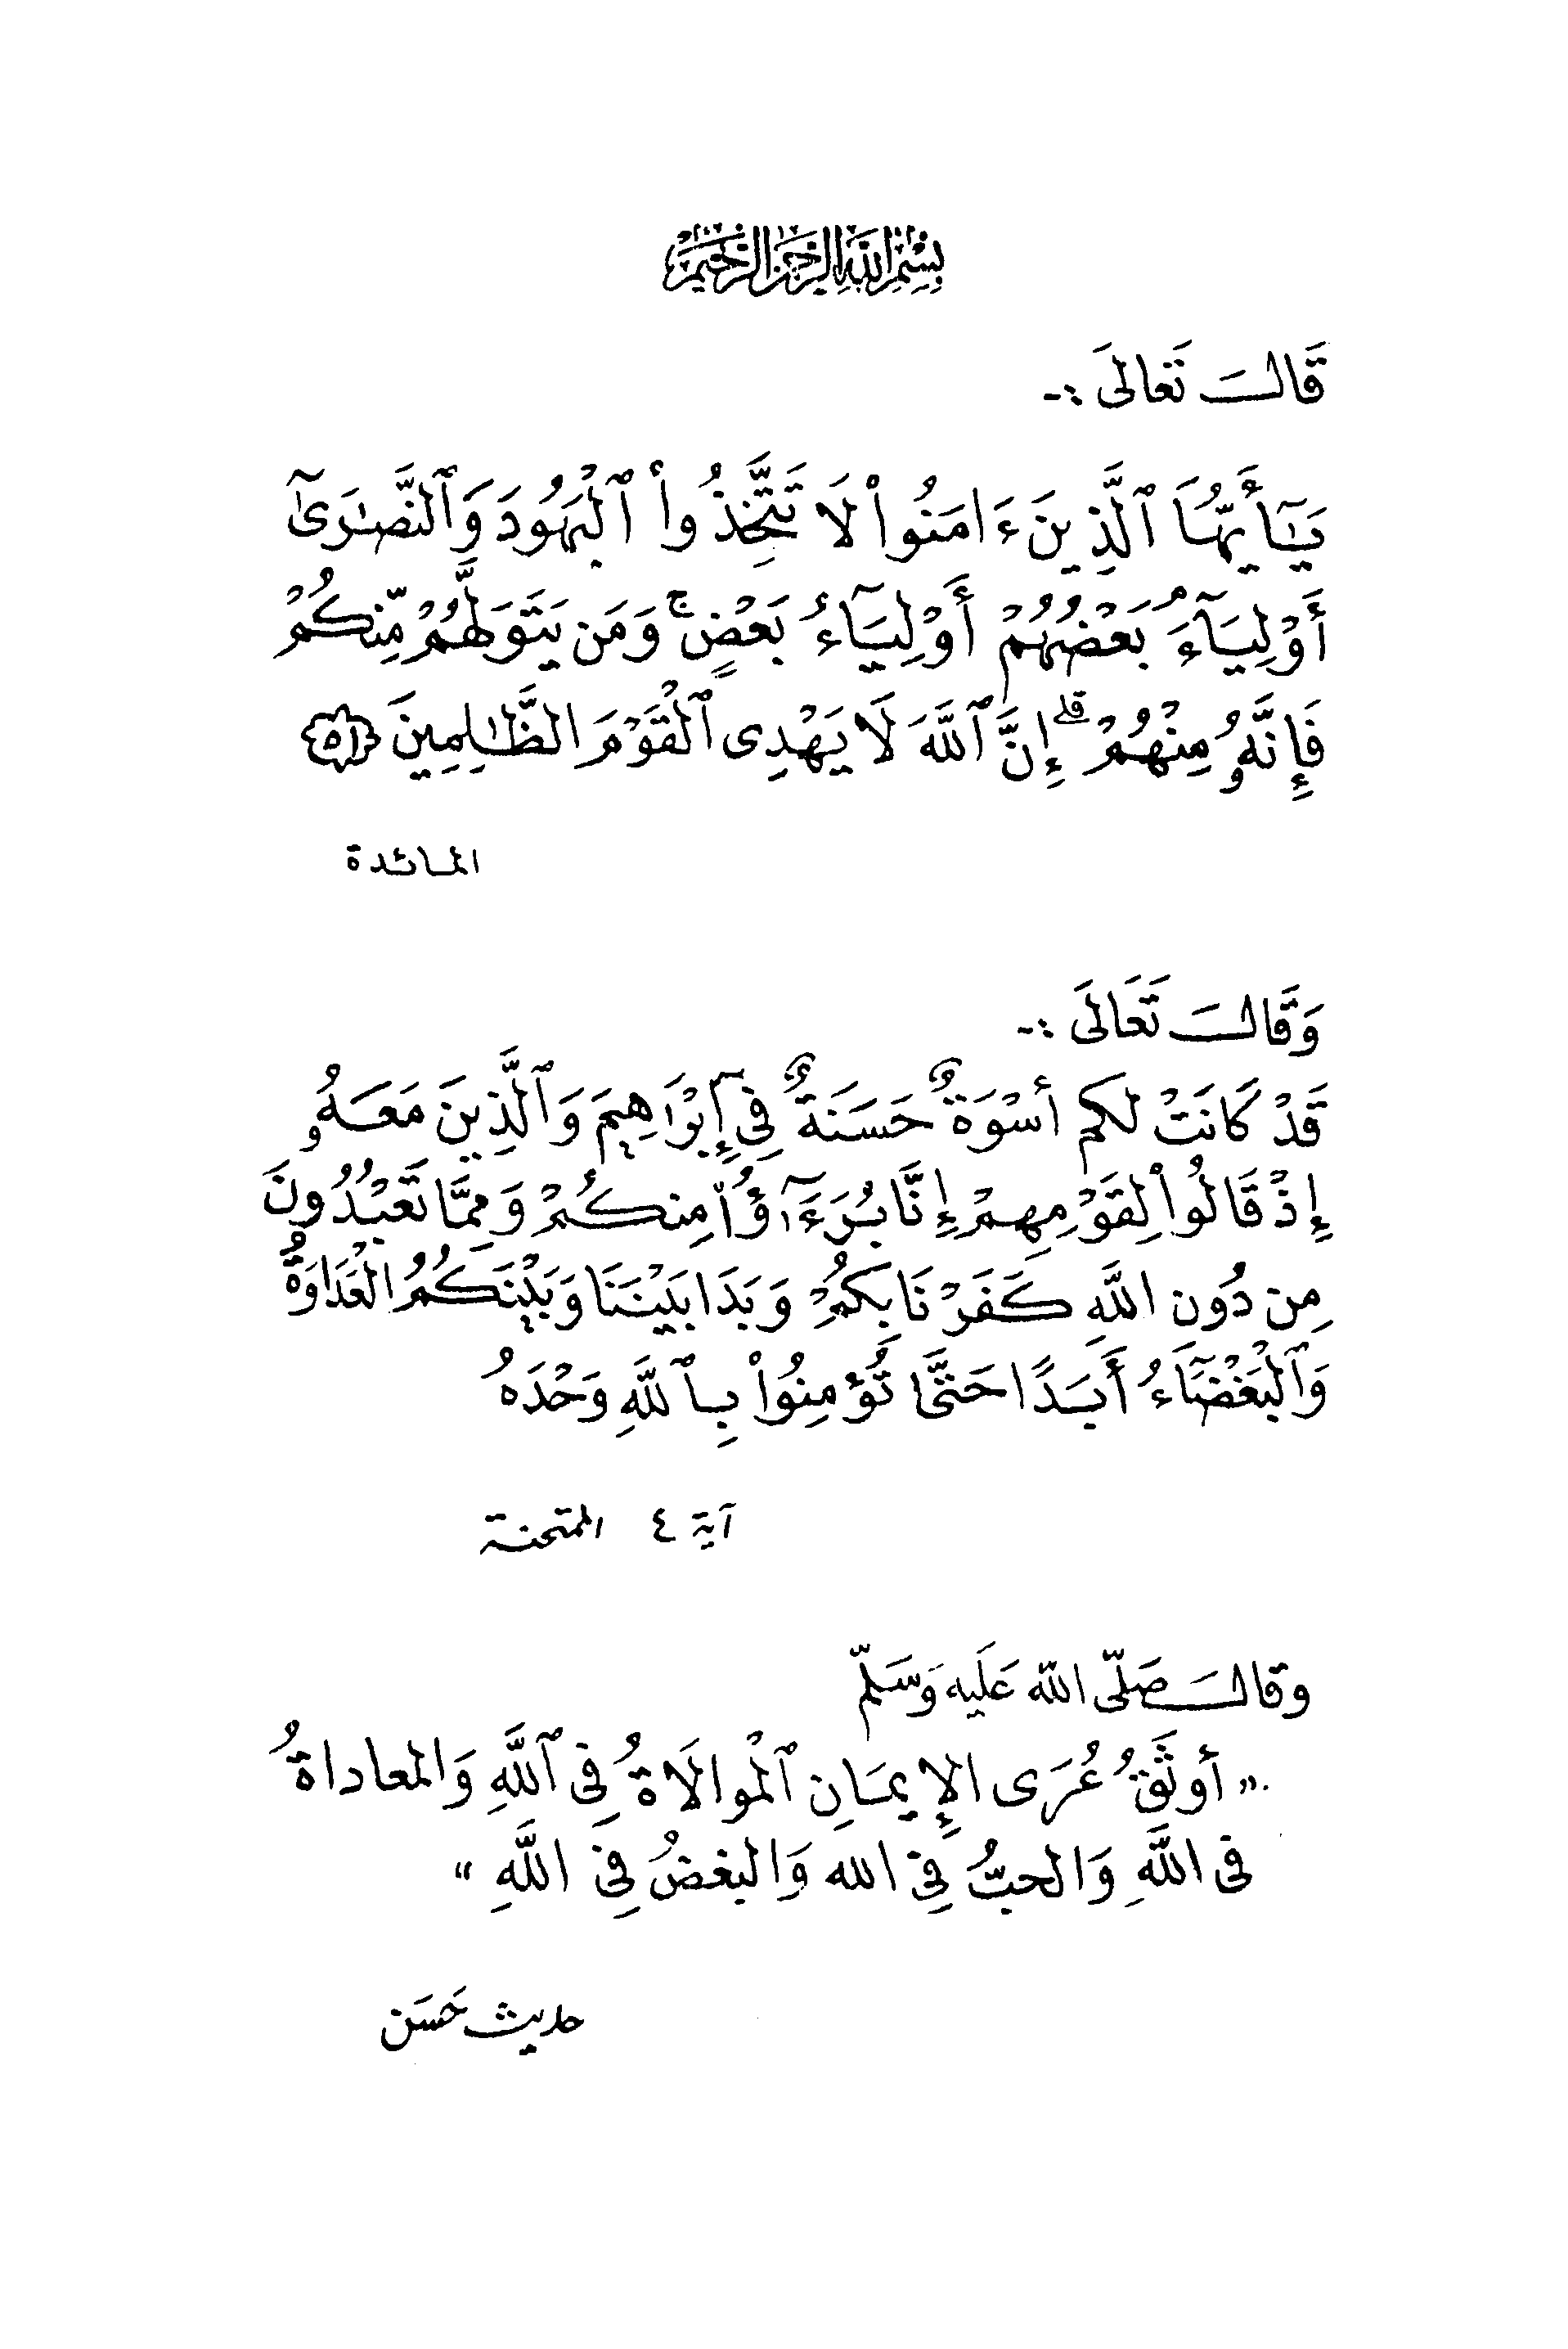 بِسْمِ اللَّهِ الرَّحْمَنِ الرَّحِيمِ
قَالَ تَعَالَى :-
يَـٰٓأَيُّهَا ٱلَّذِينَ ءَامَنُوا۟ لَا تَتَّخِذُوا۟ ٱلْيَهُودَ وَٱلنَّصَـٰرَىٰٓ
أَوْلِيَآءَ ۘ بَعْضُهُمْ أَوْلِيَآءُ بَعْضٍ ۚ وَمَن يَتَوَلَّهُم مِّنكُمْ
فَإِنَّهُۥ مِنْهُمْ ۗ إِنَّ ٱللَّهَ لَا يَهْدِى ٱلْقَوْمَ الظَّـٰلِمِينَ ﴿٥١﴾
المائدة
وَقَالَ تَعَالَى :-
قَدْ كَانَتْ لكم أُسْوَةٌ حَسَنَةٌ فِىٓ إِبْرَاهِيمَ وَٱلَّذِينَ مَعَهُۥ
إِذْ قَالُوا۟ لِقَوْمِهِمْ إِنَّا بُرَءَٰٓؤُا۟ مِنكُمْ وَمِمَّا تَعْبُدُونَ
مِن دُونِ اللَّهِ كَفَرْنَا بِكُمْ وَبَدَا بَيْنَنَا وَبَيْنَكُمُ الْعَدَاوَةُ
وَٱلْبَغْضَآءُ أَبَدًا حَتَّىٰ تُؤْمِنُوا۟ بِٱللَّهِ وَحْدَهُ
آية ٤ الممتحنة
وقال صَلّى الله عَلَيه وَسَلّم
« أوثَقُ عُرَى الإِيمَانِ ٱلْموالَاةُ فِى ٱللَّهِ وَالمعاداةُ
فى اللَّهِ وَالحبُّ فِى الله وَالبغضُ فِى اللَّهِ »
حديث حَسَن